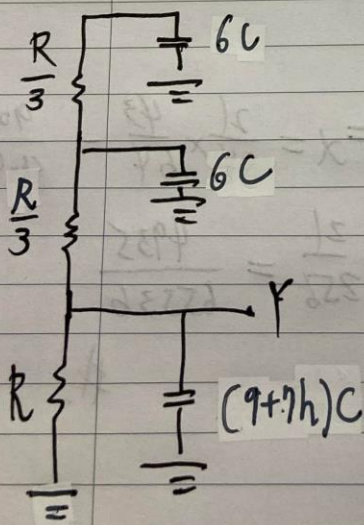 R/3
6C
R/3
6C
Y
R
(9+7h)C